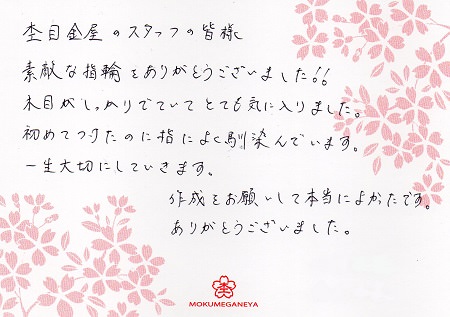 杢目金屋のスタッフの皆様
素敵な指輪をありがとうございました!!
木目がしっかりでていてとても気に入りました。
初めてつけたのに指によく馴染んでいます。
一生大切にしていきます。
作成をお願いして本当によかったです。
ありがとうございました。
杢
MOKUMEGANEYA